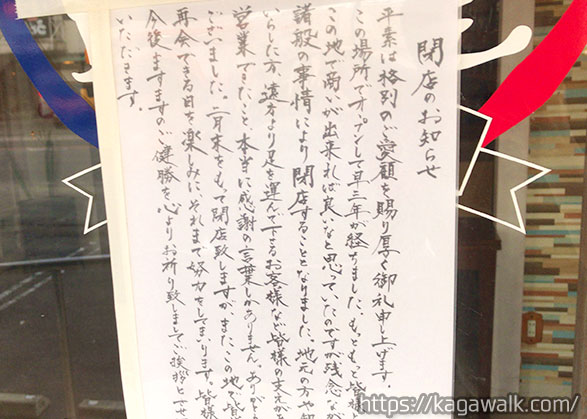 閉店のお知らせ
平素は格別のご愛顧を賜り厚く御礼申し上げます。
この場所でオープンして早三年が経ちました。もっともっと皆様と
この地で商いが出来れば良いなと思っていたのですが残念な
諸般の事情により閉店することとなりました。地元の方や知
いらした方、遠方より足を運んで下さるお客様など皆様の支えがあ
営業できたこと、本当に感謝の言葉しかありません。ありがと
ございました。二月末をもって閉店致しますが、またこの地で皆
再会できる日を楽しみに、それまで努力をしてまいります。皆様
今後ますますのご健勝を心よりお祈り致しましてご挨拶とさせ
いただきます。
https://kagawalk.com/